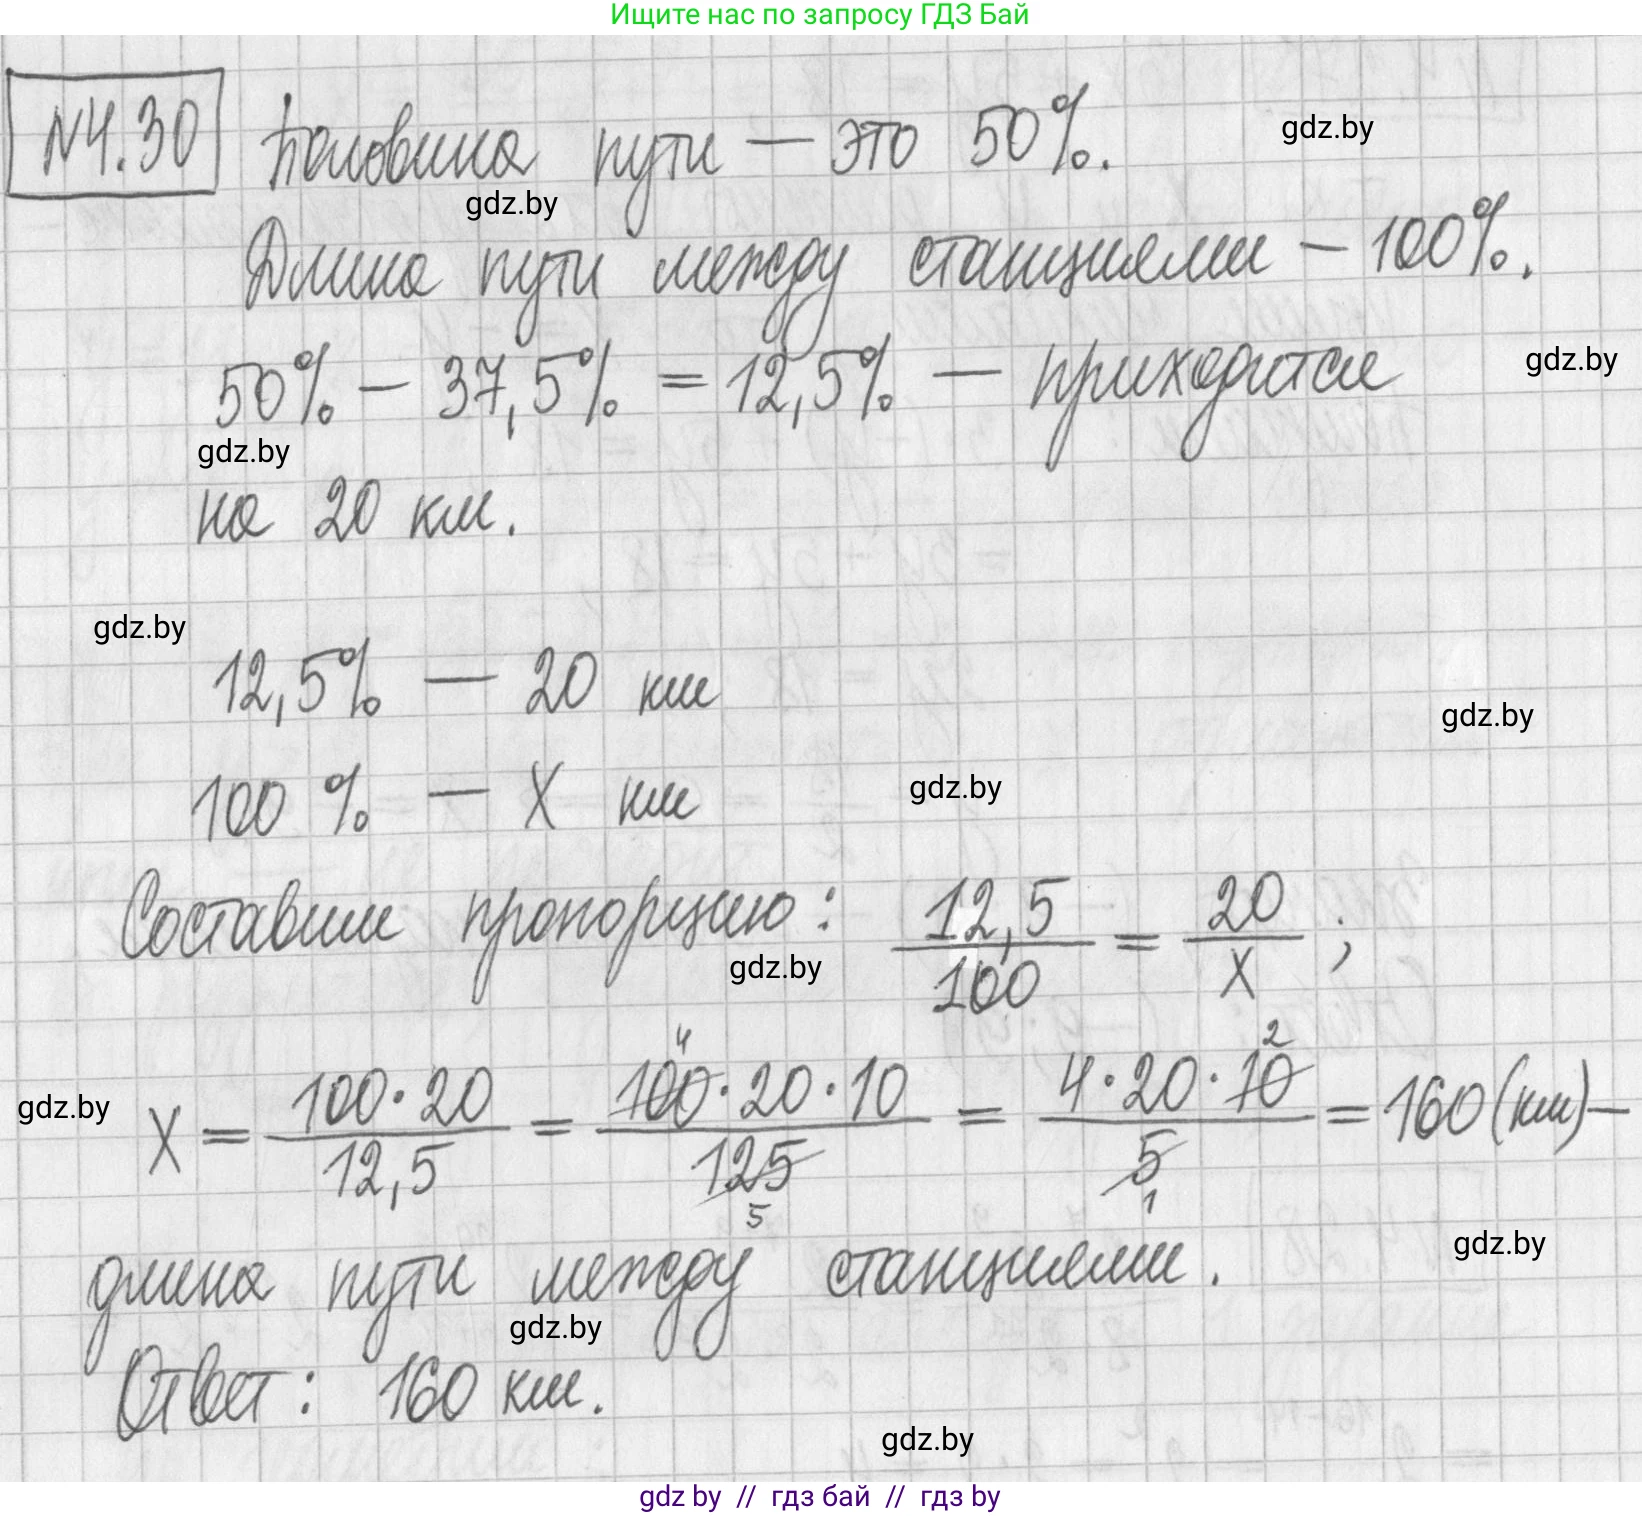 Ищите нас по запросу ГДЗ Бай
№4.30 Половина пути — это 50%.
gdz.by
gdz.by
Длина пути между станциями — 100%.
50% — 37,5% = 12,5% — приходится
gdz.by
gdz.by
на 20 км.
gdz.by
12,5% — 20 км
gdz.by
100 % — X км
gdz.by
Составим пропорцию: 12,5/100 = 20/X ;
gdz.by
X = 100·20/12,5 = 100·20·10/125 = 4·20·10/5 = 160 (км) —
4 5 2 1
gdz.by
длина пути между станциями.
gdz.by
gdz.by
Ответ: 160 км.
gdz.by
gdz by // гдз бай // гдз by